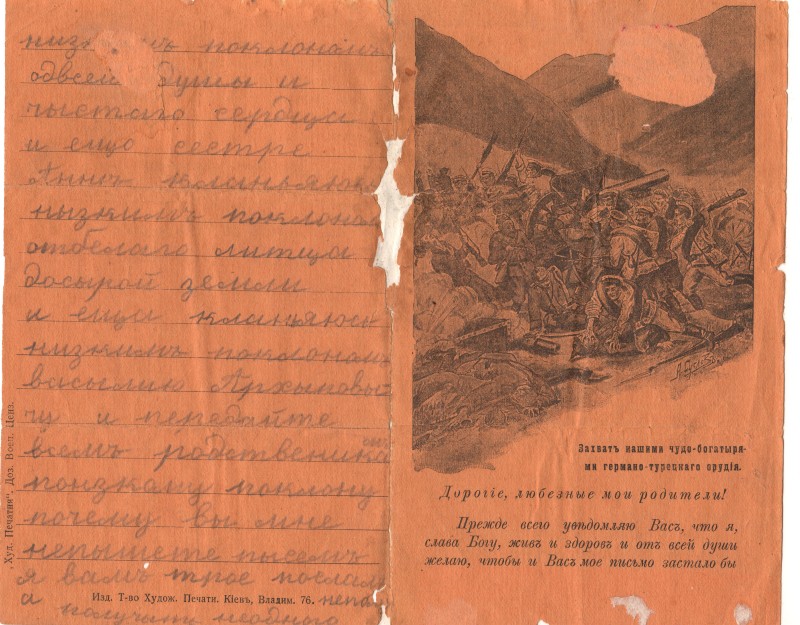 низкимъ поклонамъ
одвсей душы и
чыстаго сердца
и ещо сестре
Аннъ кланьяюсь
нызкимъ поклонам
отбелаго литца
досырой земли
и еща кланъяюсь
низкимъ поклонам
васылию Архыповы
чу и передайте
всемъ родственика
понзкаму поклону
почему вы мне
непышете писемъ
я вамъ трое послалъ
а получыти неоднаго
„Худ. Печатня“, Доз. Воен. Ценз.
Изд. Т-во Худож. Печати. Кіевъ, Владим. 76.
Захватъ нашими чудо-богатыря-
ми германо-турецкаго орудія.
Дорогіе, любезные мои родители!
Прежде всего увѣдомляю Васъ, что я,
слава Богу, живъ и здоровъ и отъ всей души
желаю, чтобы и Васъ мое письмо застало бы